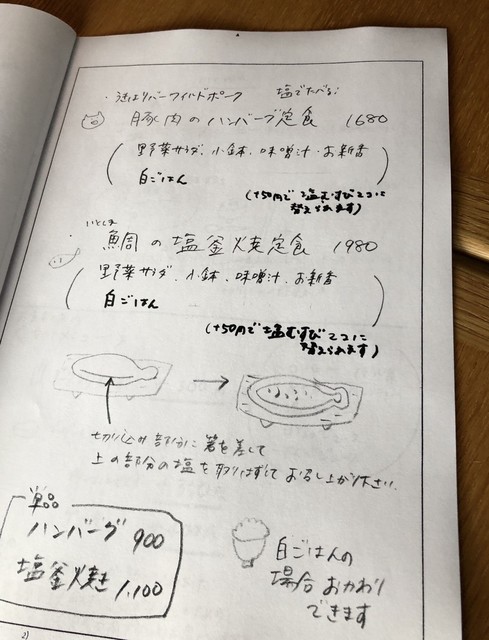 ・うまはりバーワイルドポーク 塩でたべる!
豚肉のハンバーグ定食 1680
(野菜サラダ、小鉢、味噌汁、お新香
白ごはん
(+50円で塩むすび2コに
替えられます)
いとしま
・鯛の塩釜焼定食 1980
(野菜サラダ、小鉢、味噌汁、お新香
白ごはん
(+50円で塩むすび2コに
替えられます)
切り込み部分に箸を差して
上の部分の塩を取りはずしてお召し上がり下さい。
単品
ハンバーグ 900
塩釜焼き 1,100
白ごはんの
場合おかわり
できます
2)